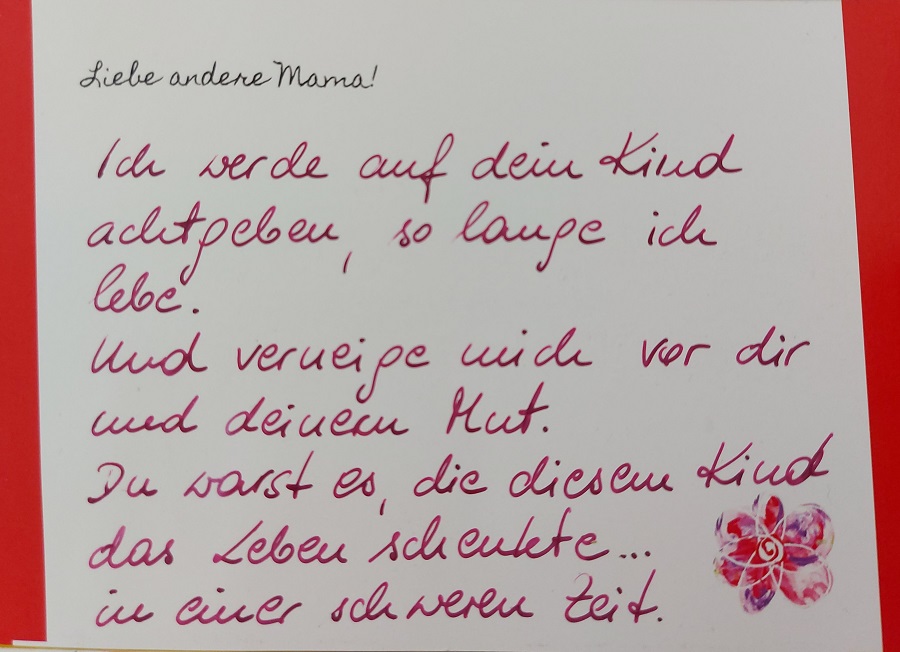 Liebe andere Mama!
Ich werde auf dein Kind
achtgeben, so lange ich
lebe.
Und verneige mich vor dir
und deinem Mut.
Du warst es, die diesem Kind
das Leben schenkte...
in einer schweren Zeit.